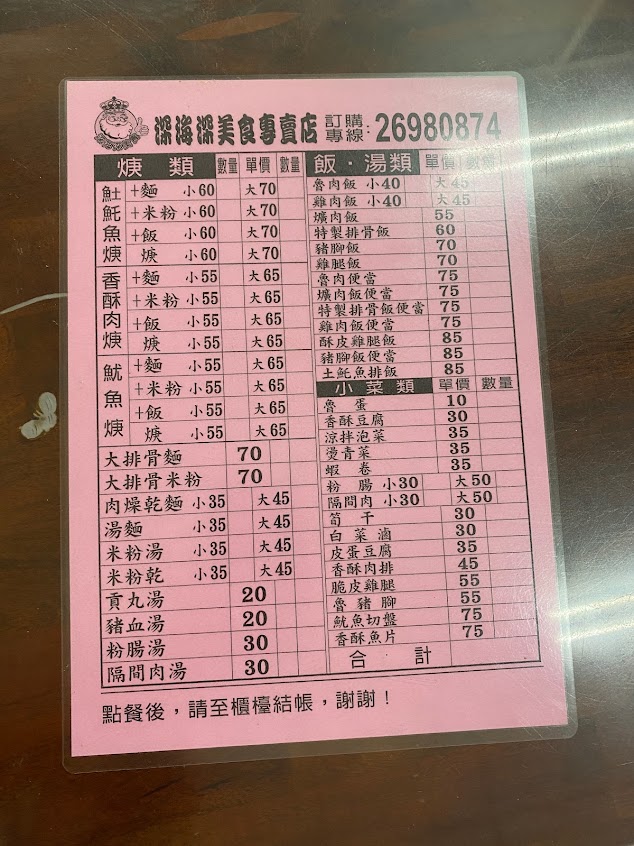 深海深美食專賣店 訂購專線：26980874
焿類 數量 單價 數量
魠魚焿
+麵 小60 大70
+米粉 小60 大70
+飯 小60 大70
焿 小60 大70
香酥肉焿
+麵 小55 大65
+米粉 小55 大65
+飯 小55 大65
焿 小55 大65
魷魚焿
+麵 小55 大65
+米粉 小55 大65
+飯 小55 大65
焿 小55 大65
大排骨麵 70
大排骨米粉 70
肉燥乾麵 小35 大45
湯麵 小35 大45
米粉湯 小35 大45
米粉乾 小35 大45
貢丸湯 20
豬血湯 20
粉腸湯 30
隔間肉湯 30
飯．湯類 單價 數量
魯肉飯 小40 大45
雞肉飯 小40 大45
爌肉飯 55
特製排骨飯 60
豬腳飯 70
雞腿飯 70
魯肉便當 75
爌肉飯便當 75
特製排骨飯便當 75
雞肉飯便當 75
酥皮雞腿飯 85
豬腳飯便當 85
土魠魚排飯 85
小菜類 單價 數量
魯蛋 10
香酥豆腐 30
涼拌泡菜 35
燙青菜 35
蝦卷 35
粉腸 小30 大50
隔間肉 小30 大50
筍干 30
白菜滷 30
皮蛋豆腐 35
香酥肉排 45
脆皮雞腿 55
魯豬腳 55
魷魚切盤 75
香酥魚片 75
合計
點餐後，請至櫃檯結帳，謝謝！